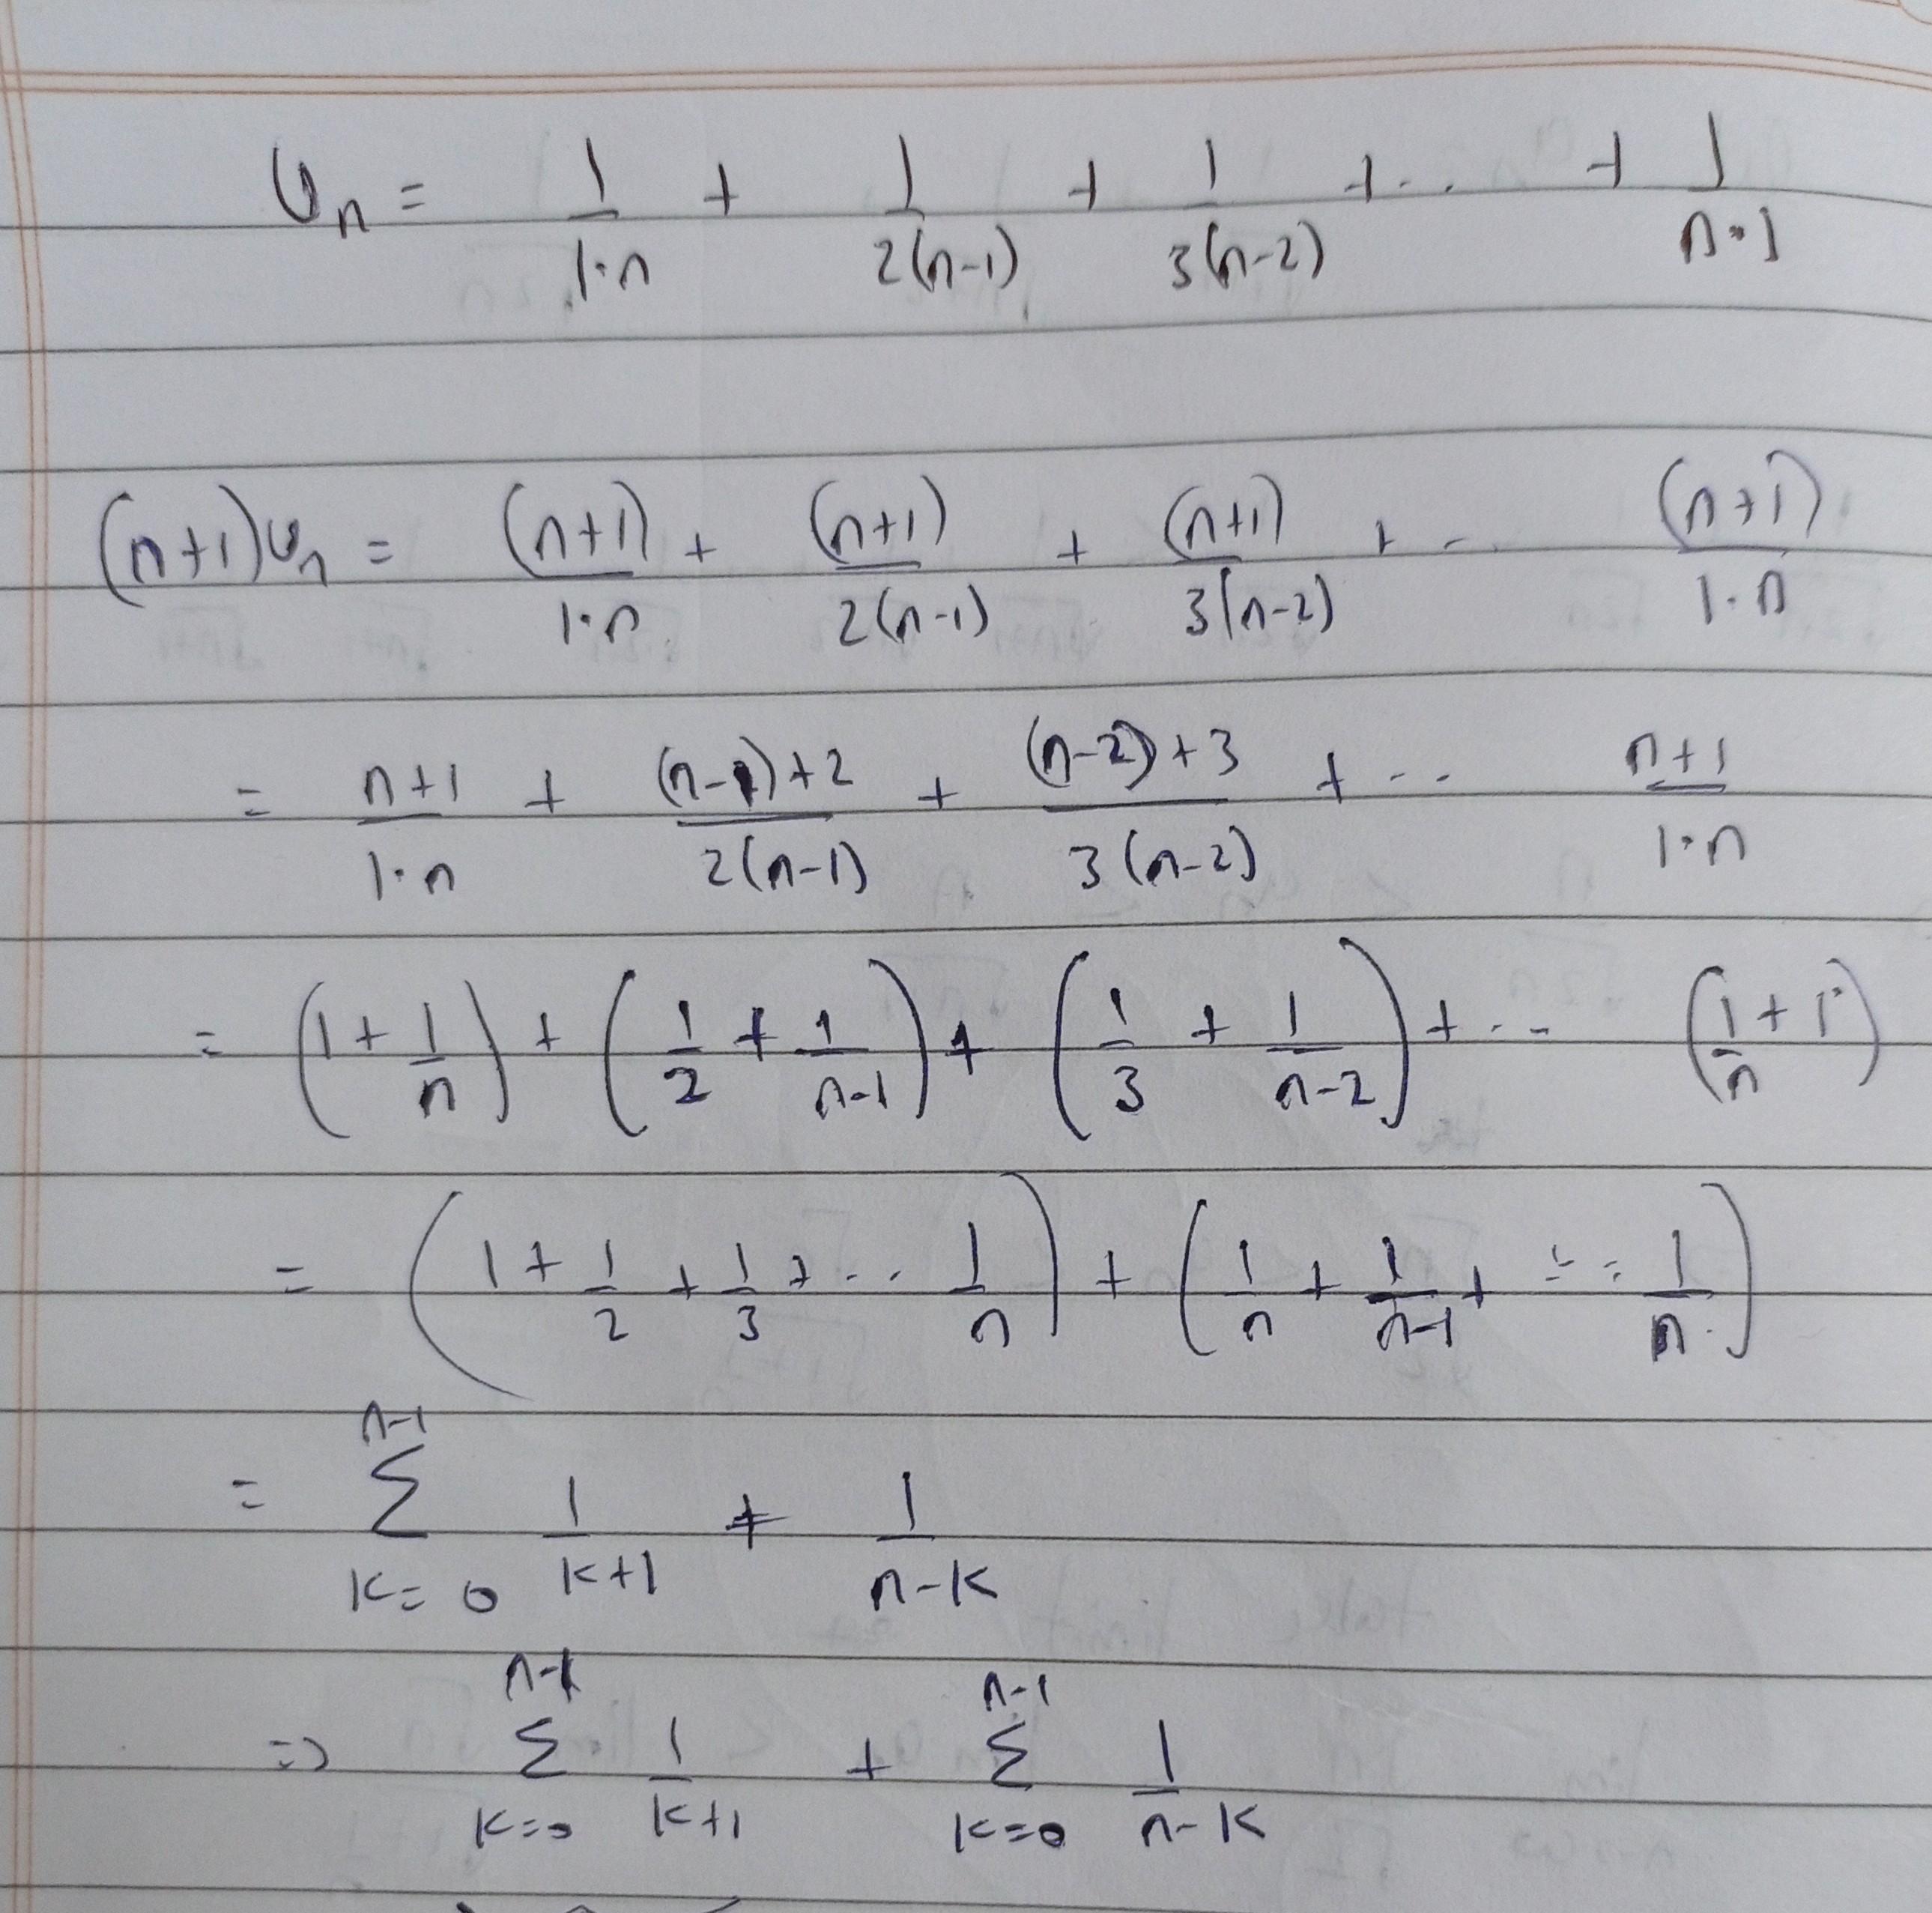 Un = 1/(1·n) + 1/(2(n-1)) + 1/(3(n-2)) + .. + 1/(n·1)
(n+1)Un = (n+1)/(1·n) + (n+1)/(2(n-1)) + (n+1)/(3(n-2)) + -- (n+1)/(1·n)
= (n+1)/(1·n) + ((n-1)+2)/(2(n-1)) + ((n-2)+3)/(3(n-2)) + -- (n+1)/(1·n)
= (1 + 1/n) + (1/2 + 1/(n-1)) + (1/3 + 1/(n-2)) + -- (1/n + 1)
= (1 + 1/2 + 1/3 + .. 1/n) + (1/n + 1/(n-1) + -- 1/n)
= Σ_{k=0}^{n-1} 1/(k+1) + 1/(n-k)
=> Σ_{k=0}^{n-1} 1/(k+1) + Σ_{k=0}^{n-1} 1/(n-k)